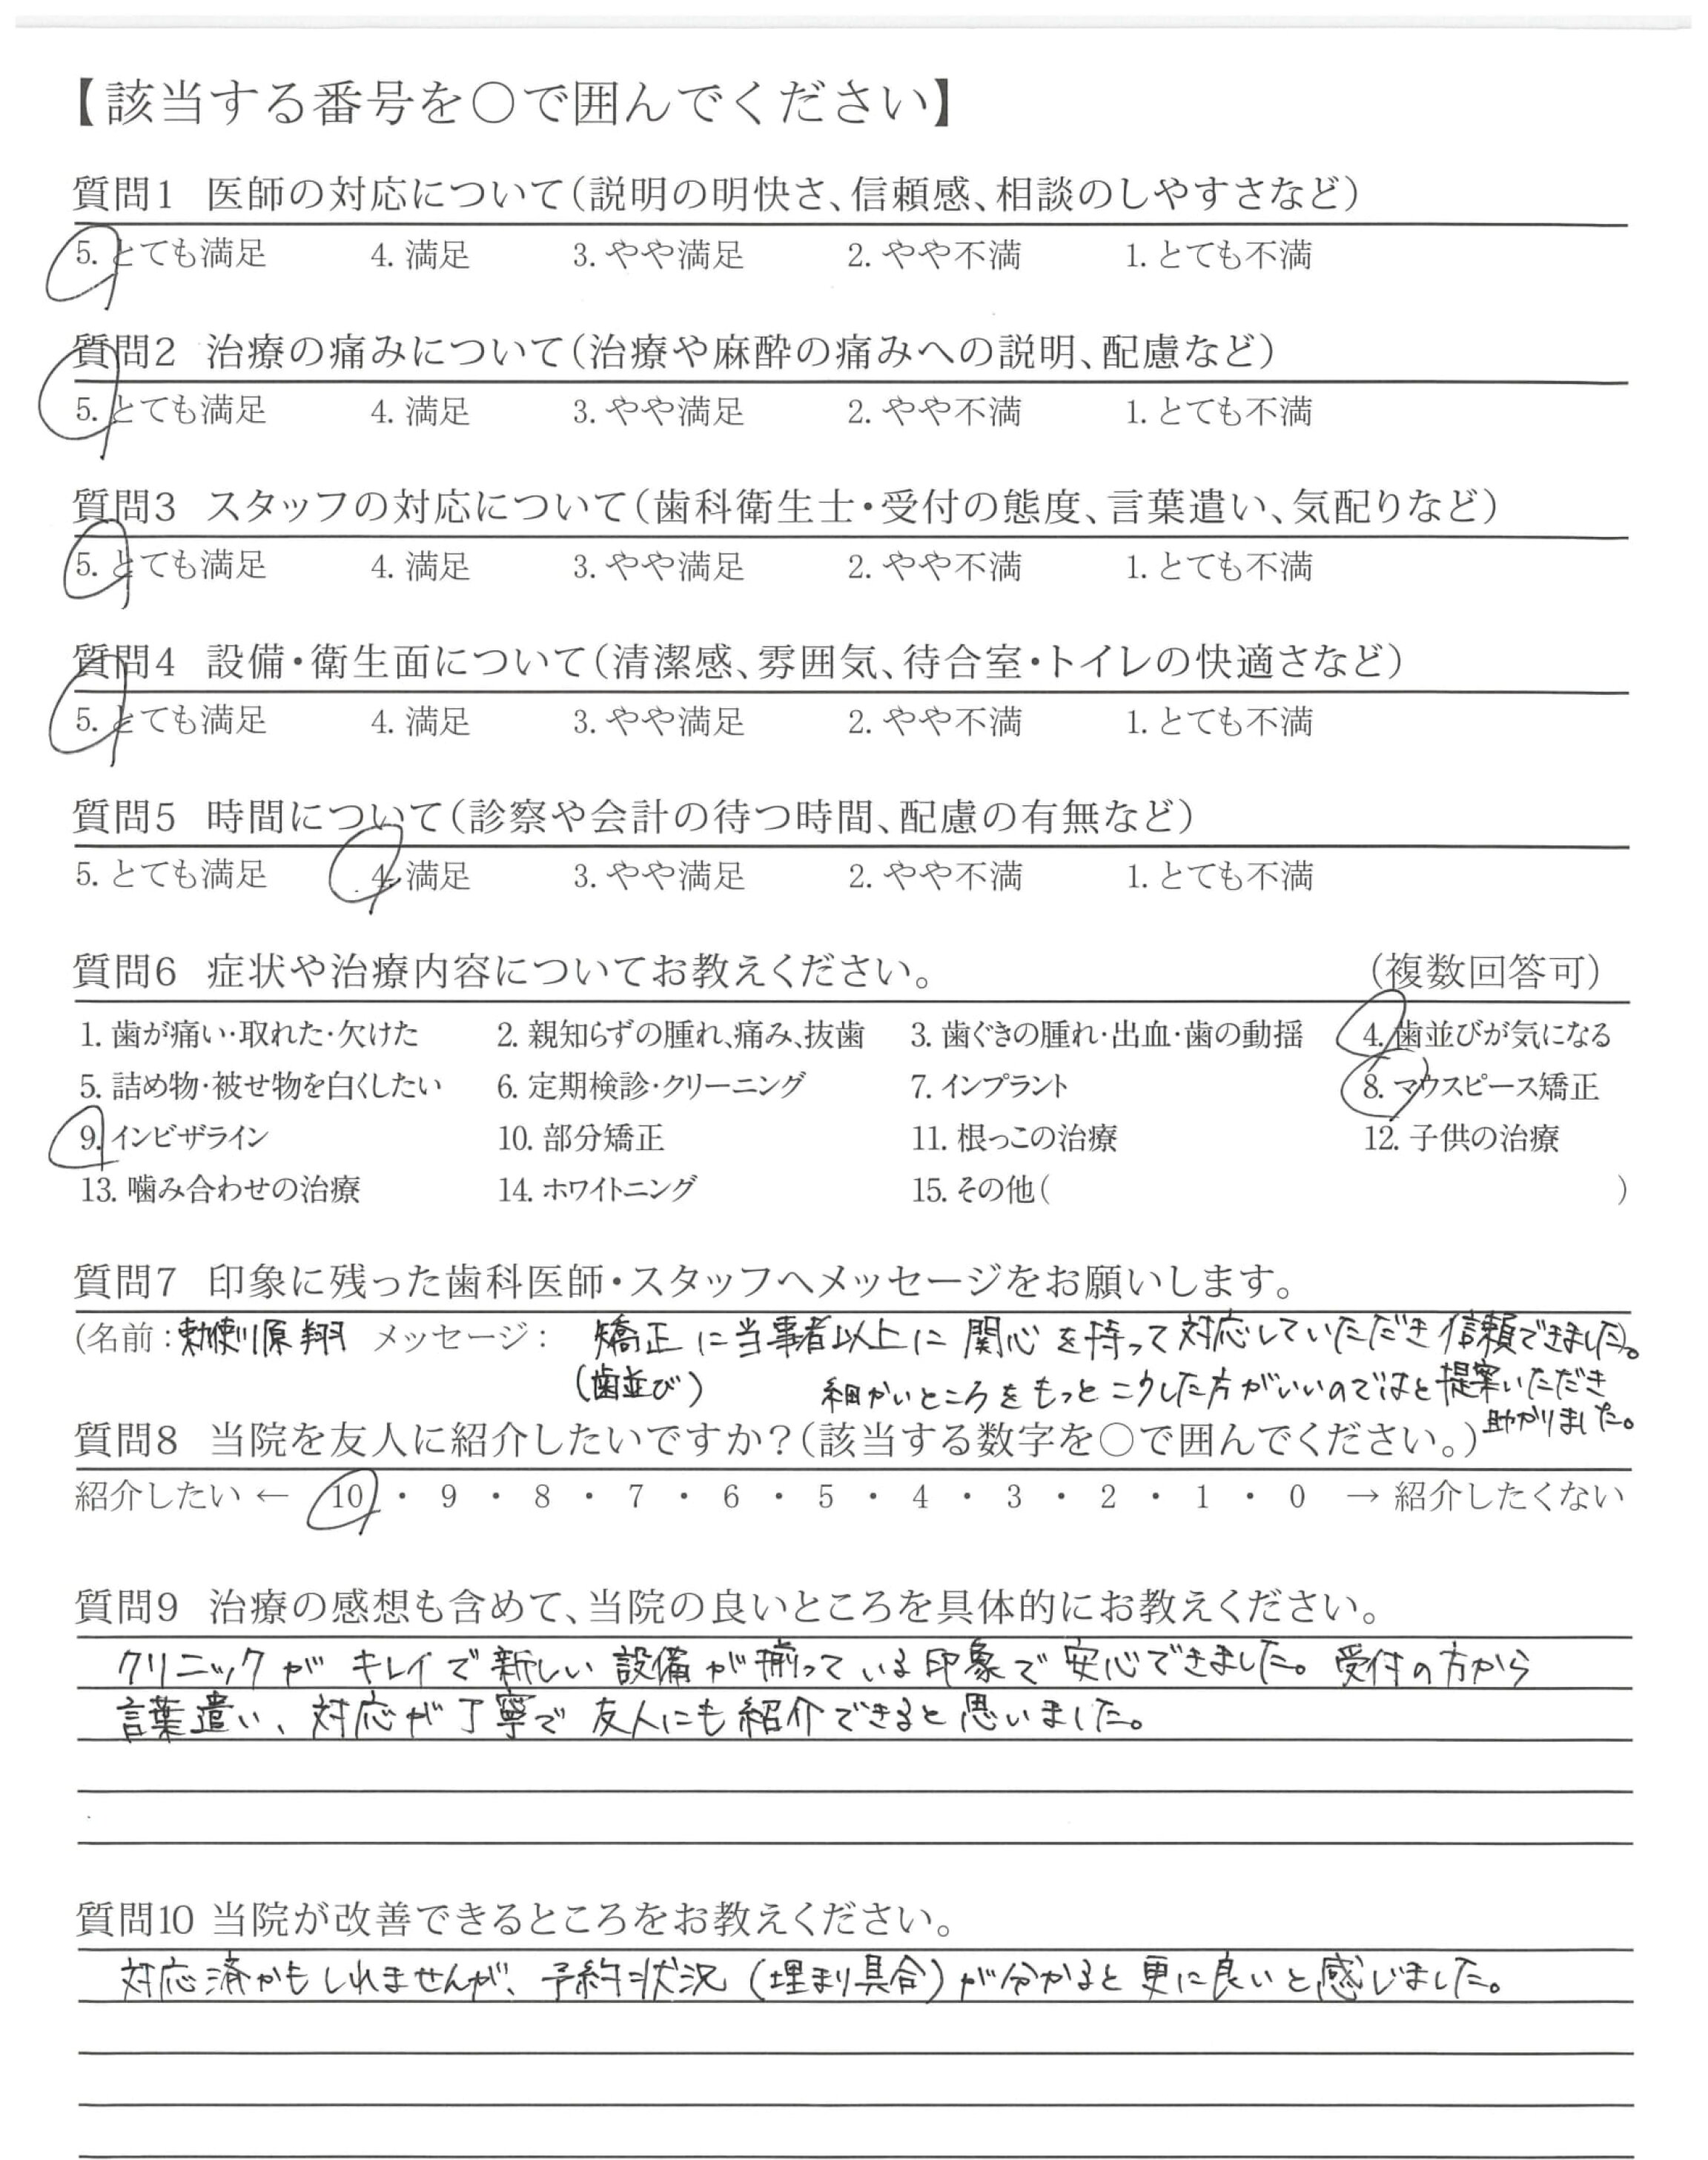 【該当する番号を○で囲んでください】
質問1 医師の対応について(説明の明快さ、信頼感、相談のしやすさなど)
5. とても満足 4. 満足 3. やや満足 2. やや不満 1. とても不満
質問2 治療の痛みについて(治療や麻酔の痛みへの説明、配慮など)
5. とても満足 4. 満足 3. やや満足 2. やや不満 1. とても不満
質問3 スタッフの対応について(歯科衛生士・受付の態度、言葉遣い、気配りなど)
5. とても満足 4. 満足 3. やや満足 2. やや不満 1. とても不満
質問4 設備・衛生面について(清潔感、雰囲気、待合室・トイレの快適さなど)
5. とても満足 4. 満足 3. やや満足 2. やや不満 1. とても不満
質問5 時間について(診察や会計の待つ時間、配慮の有無など)
5. とても満足 4. 満足 3. やや満足 2. やや不満 1. とても不満
質問6 症状や治療内容についてお教えください。 (複数回答可)
1. 歯が痛い・取れた・欠けた 2. 親知らずの腫れ、痛み、抜歯 3. 歯ぐきの腫れ・出血・歯の動揺 4. 歯並びが気になる
5. 詰め物・被せ物を白くしたい 6. 定期検診・クリーニング 7. インプラント 8. マウスピース矯正
9. インビザライン 10. 部分矯正 11. 根っこの治療 12. 子供の治療
13. 噛み合わせの治療 14. ホワイトニング 15. その他( )
質問7 印象に残った歯科医師・スタッフへメッセージをお願いします。
(名前:勅使川原 翔 メッセージ: 矯正に当事者以上に関心を持って対応していただき信頼できました。
(歯並び) 細かいところをもっとこうした方がいいのではと提案いただき
助かりました。
質問8 当院を友人に紹介したいですか?(該当する数字を○で囲んでください。)
紹介したい ← 10 ・ 9 ・ 8 ・ 7 ・ 6 ・ 5 ・ 4 ・ 3 ・ 2 ・ 1 ・ 0 → 紹介したくない
質問9 治療の感想も含めて、当院の良いところを具体的にお教えください。
クリニックがキレイで新しい設備が揃っている印象で安心できました。受付の方から
言葉遣い、対応が丁寧で友人にも紹介できると思いました。
質問10 当院が改善できるところをお教えください。
対応済かもしれませんが、予約状況(埋まり具合)が分かると更に良いと感じました。